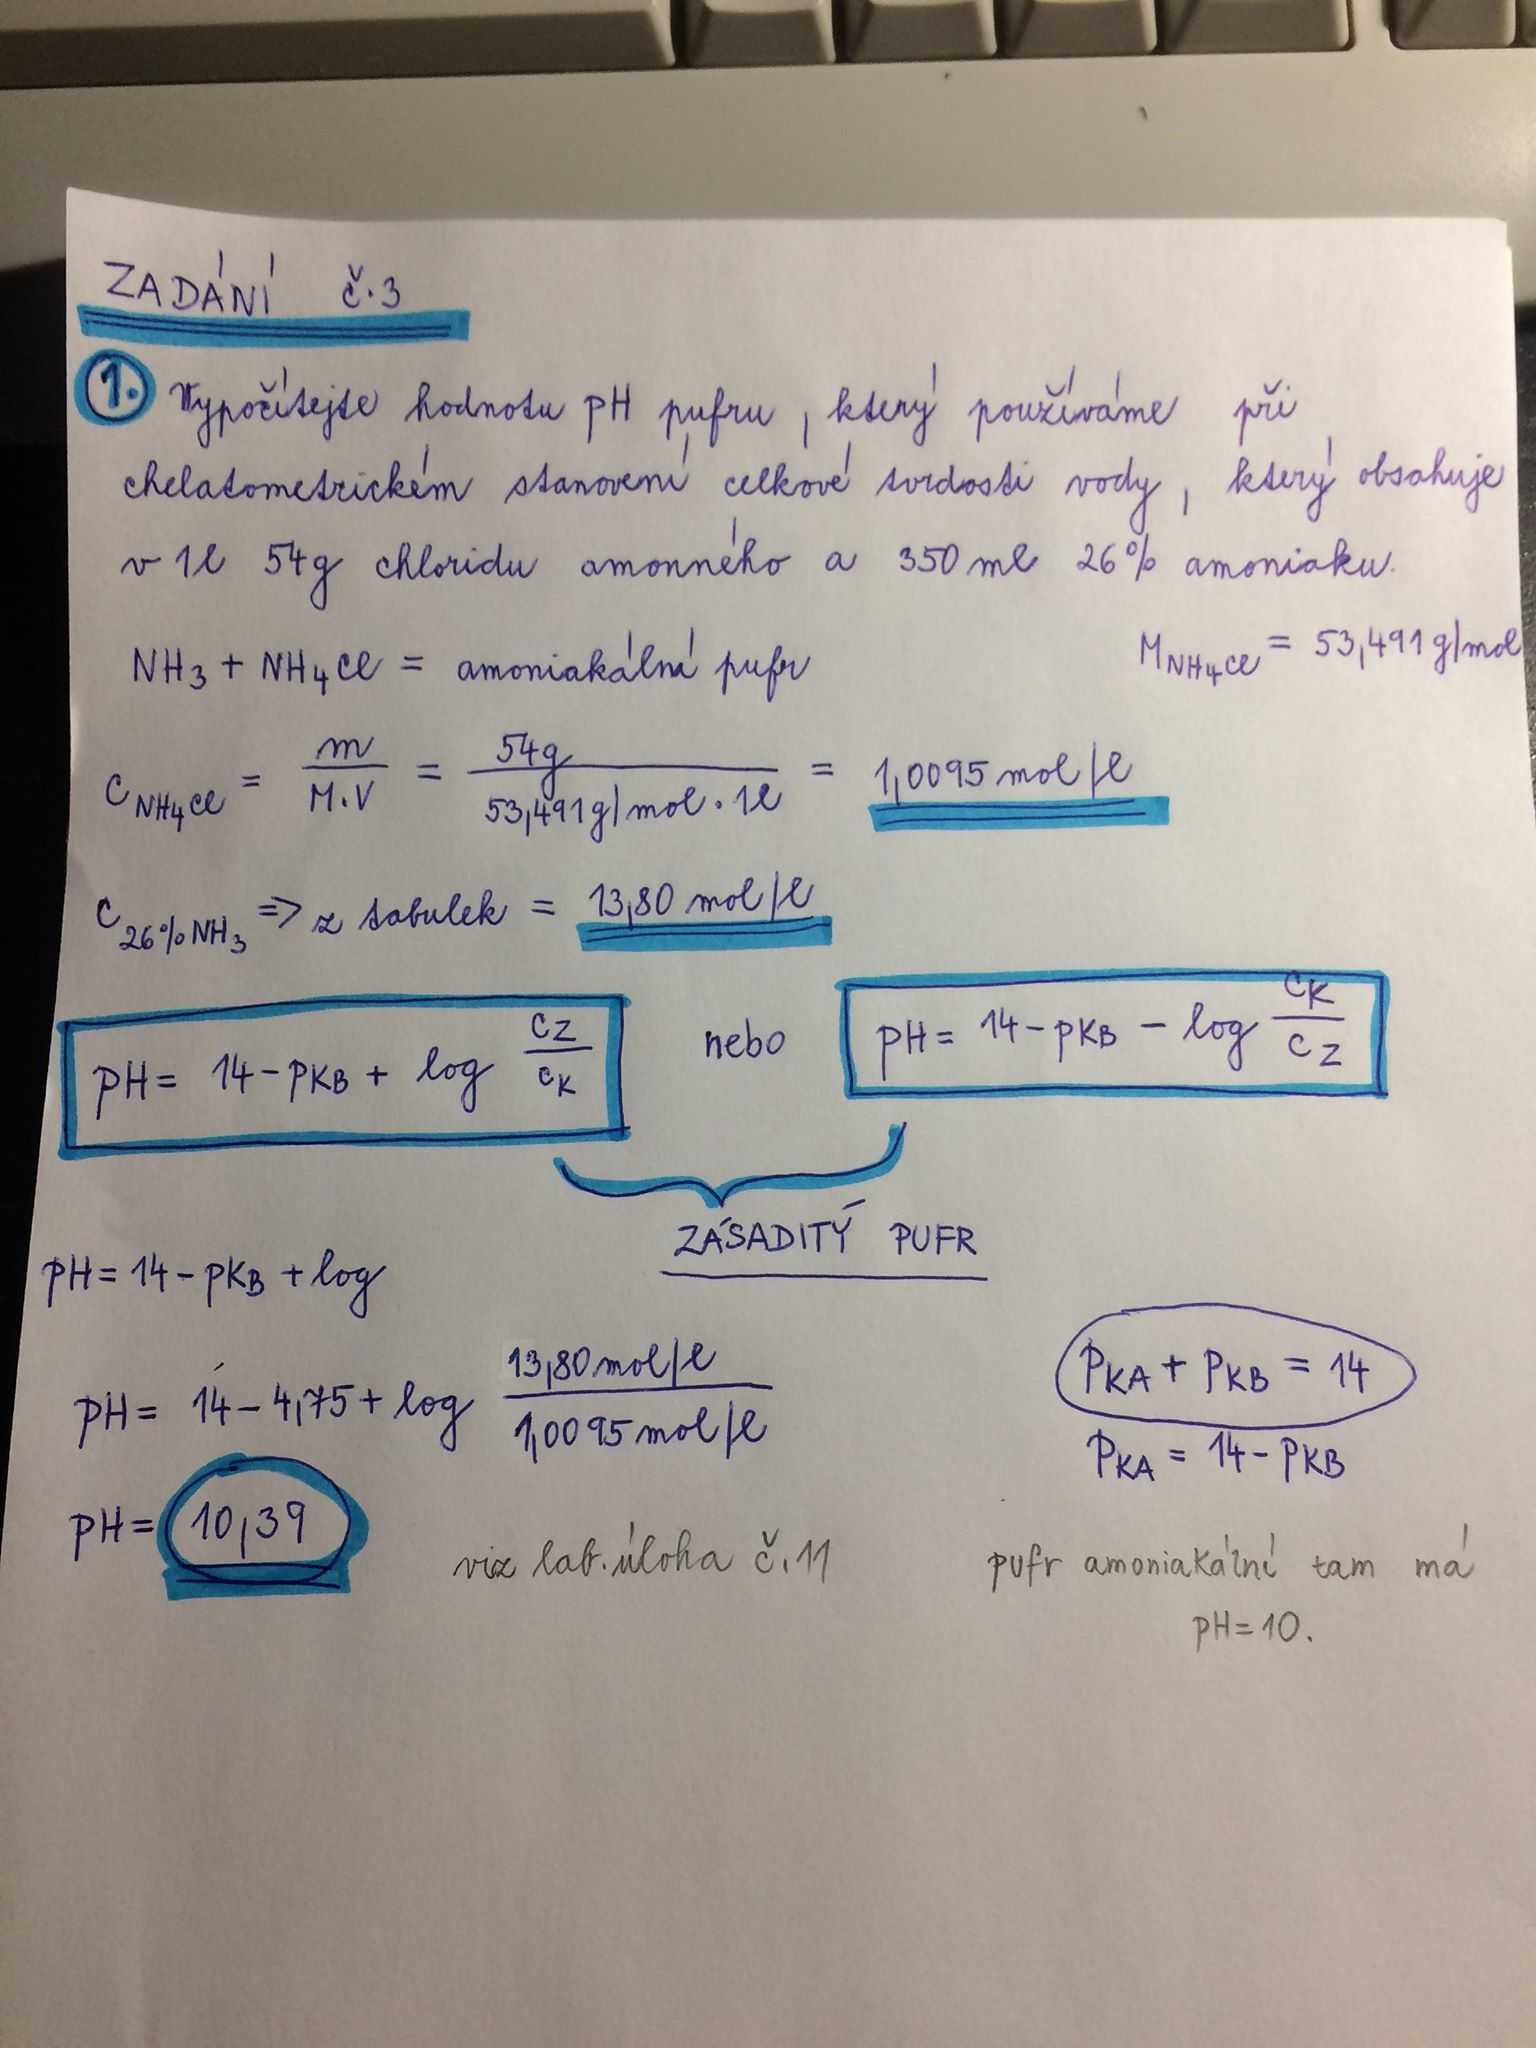 ZADÁNÍ č.3
1. Vypočítejte hodnotu pH pufru, který používáme při
chelatometrickém stanovení celkové tvrdosti vody, který obsahuje
v 1l 54g chloridu amonného a 350 ml 26% amoniaku.
NH₃ + NH₄Cl = amoniakální pufr M_NH₄Cl = 53,491 g/mol
c_NH₄Cl = m/(M·V) = 54g/(53,491g/mol · 1l) = 1,0095 mol/l
c_26%NH₃ => z tabulek = 13,80 mol/l
pH = 14 - pKB + log cZ/cK nebo pH = 14 - pKB - log cK/cZ
ZÁSADITÝ PUFR
pH = 14 - pKB + log
pH = 14 - 4,75 + log 13,80 mol/l / 1,0095 mol/l
pH = 10,39
pKA + pKB = 14
pKA = 14 - pKB
viz lab. úloha č.11 pufr amoniakální tam má
pH = 10.